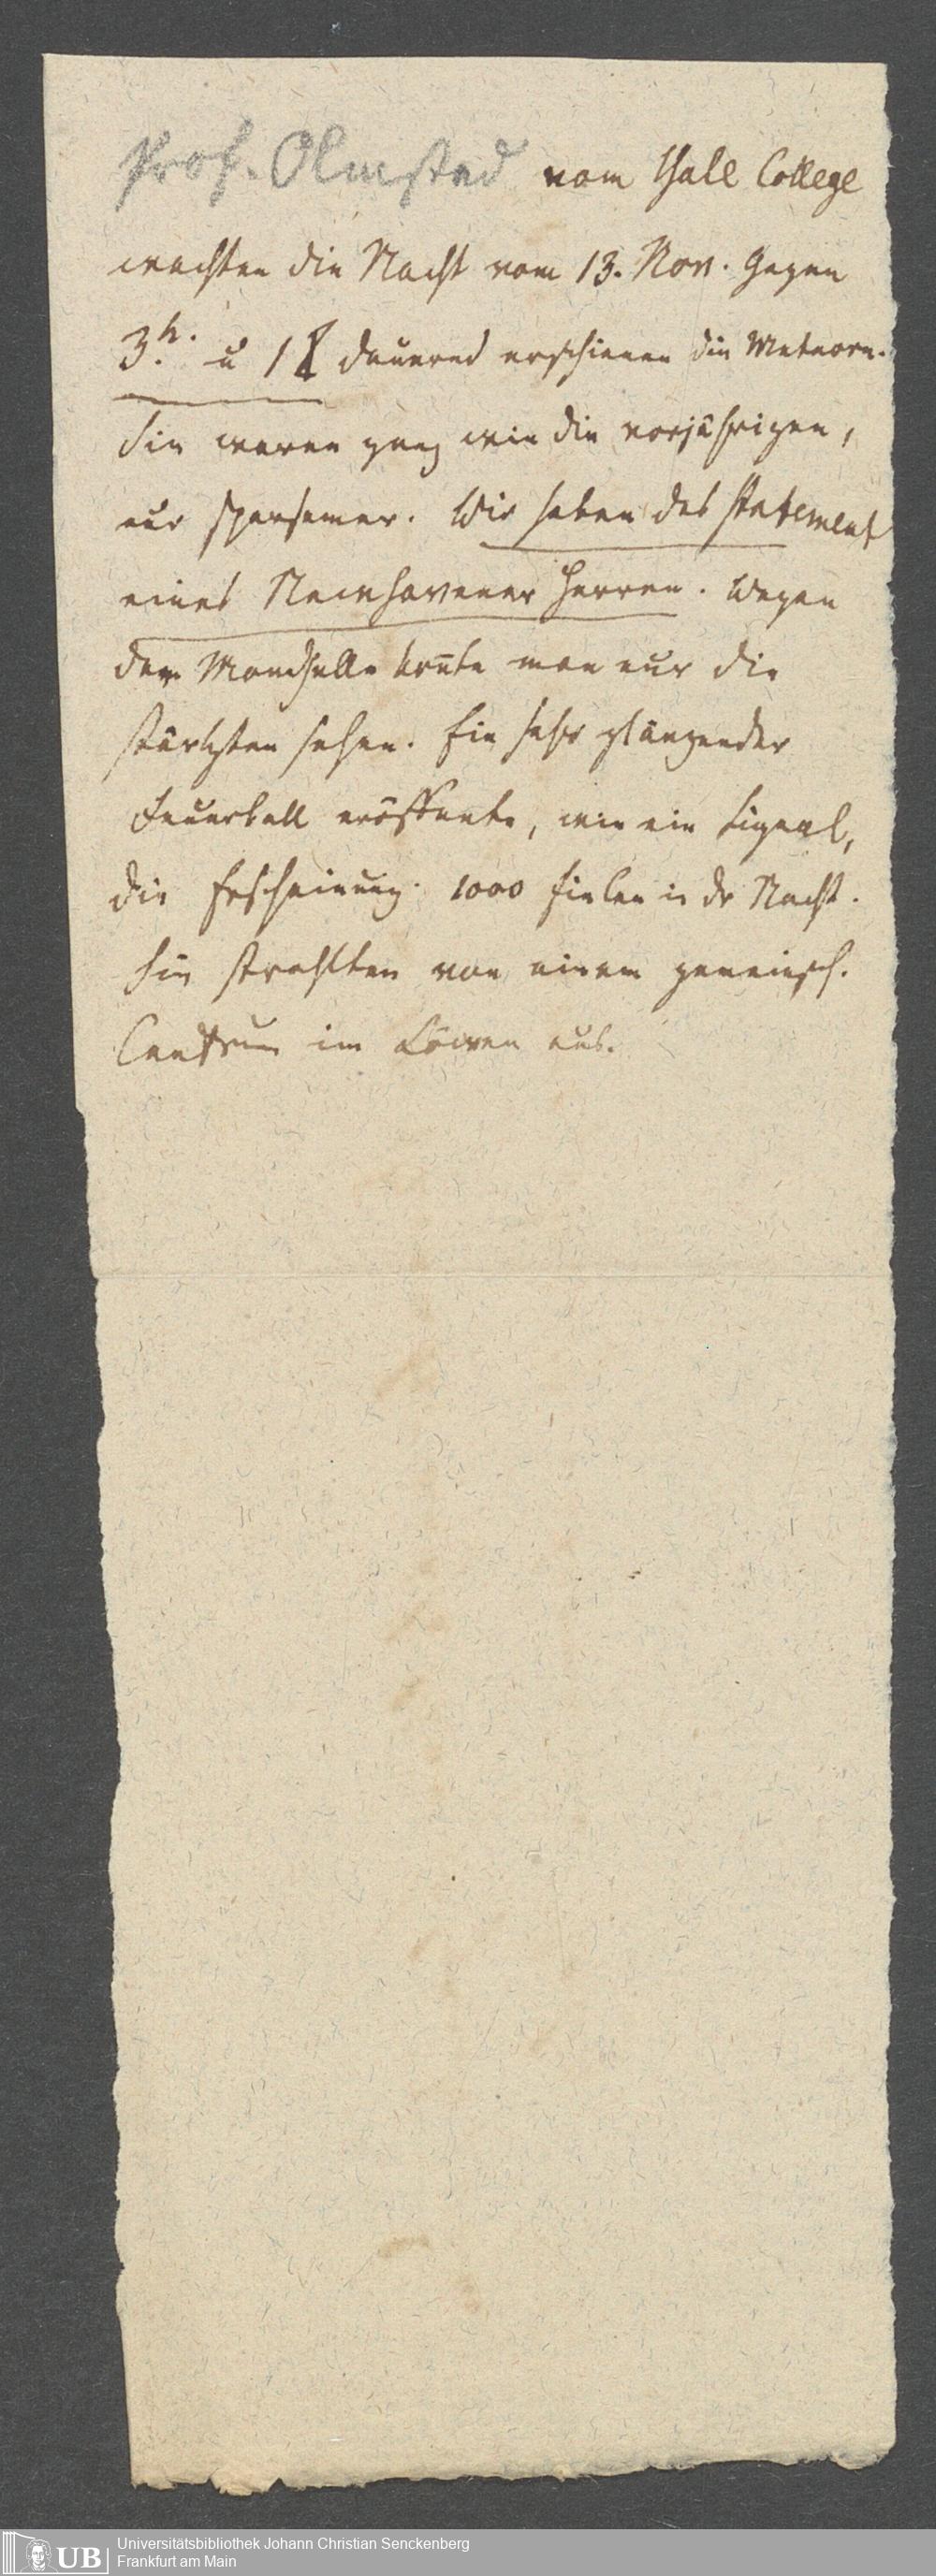 Prof. Olmsted vom Yale College
wachten die Nacht vom 13. Nov. Gegen
3.h. u 1 dauernd erschienen die Meteore.
Sie waren ganz wie die vorjährigen,
nur sparsamer. Wir haben das Statement
eines Newhavener Herren. Wegen
der Mondhelle konnte man nur die
stärksten sehen. Ein sehr glänzender
Feuerball eröffnete, wie ein Signal,
die Erscheinung. 1000 fielen in dr Nacht.
Sie strahlten von einem gemeinsch.
Centrum im Löwen aus.
UB Universitätsbibliothek Johann Christian Senckenberg
Frankfurt am Main